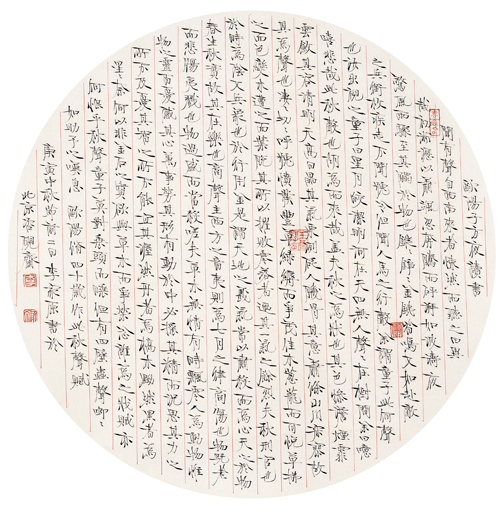 歐陽子方夜讀書
聞有聲自西南來者悚然而聽之曰異
哉初淅瀝以蕭颯忽奔騰而砰湃如波濤夜
驚風雨驟至其觸於物也鏦鏦錚錚金鐵皆鳴又如赴敵
之兵銜枚疾走不聞號令但聞人馬之行聲余謂童子此何聲
也汝出視之童子曰星月皎潔明河在天四無人聲聲在樹間余曰噫
嘻悲哉此秋聲也胡為而來哉蓋夫秋之為狀也其色慘淡煙霏
雲斂其容清明天高日晶其氣慄冽砭人肌骨其意蕭條山川寂寥故
其為聲也淒淒切切呼號憤發豐草綠縟而爭茂佳木蔥蘢而可悅草拂
之而色變木遭之而葉脫其所以摧敗零落者乃其一氣之餘烈夫秋刑官也
於時為陰又兵象也於行用金是謂天地之義氣常以肅殺而為心天之於物
春生秋實故其在樂也商聲主西方之音夷則為七月之律商傷也物既老
而悲傷夷戮也物過盛而當殺嗟乎草木無情有時飄零人為動物惟
物之靈百憂感其心萬事勞其形有動於中必搖其精而況思其力之
所不及憂其智之所不能宜其渥然丹者為槁木黟然黑者為
星星奈何以非金石之質欲與草木而爭榮念誰為之戕賊亦
何恨乎秋聲童子莫對垂頭而睡但聞四壁蟲聲唧唧
如助予之嘆息 歐陽修四十歲作此秋聲賦
庚寅中秋前二日李家原書於
北京 齋